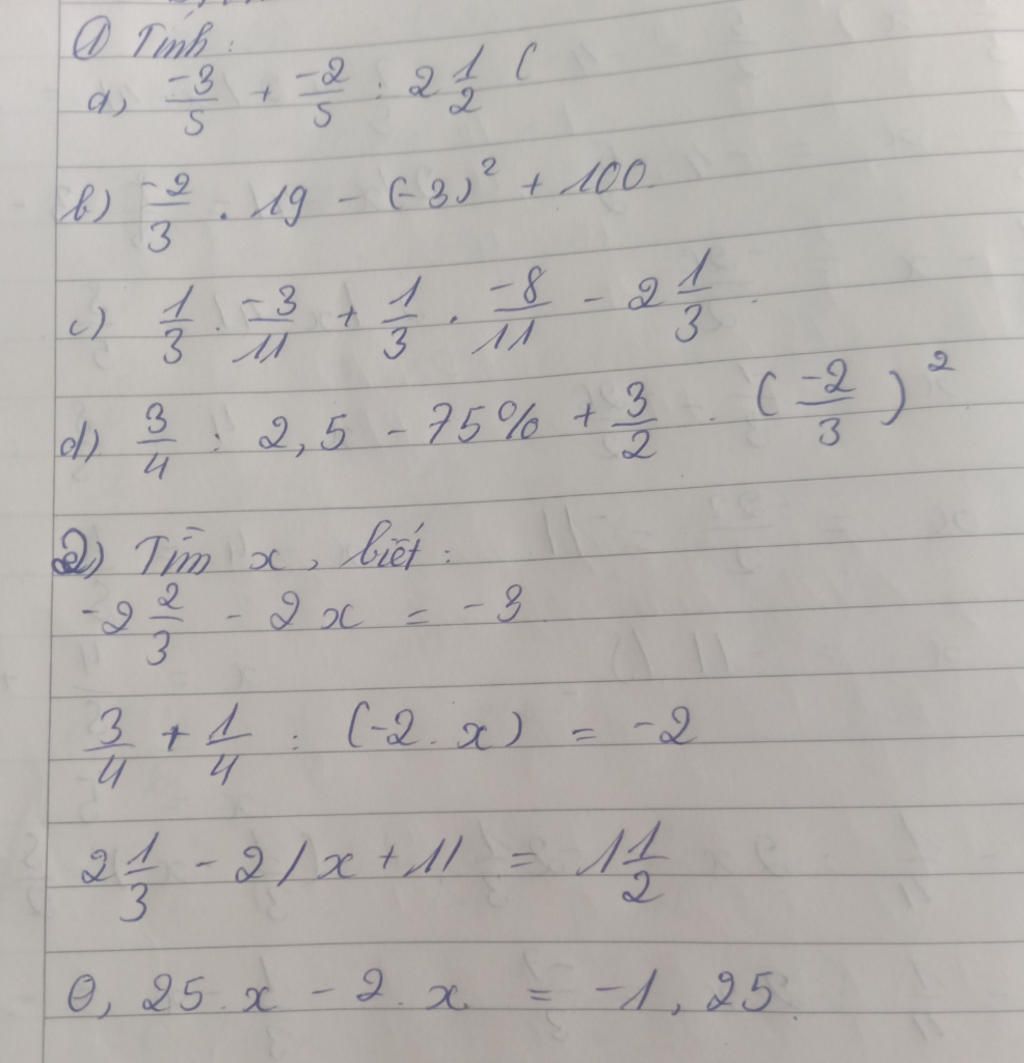 ① Tính:
a) \frac{-3}{5} + \frac{-2}{5} : 2\frac{1}{2} (
b) \frac{-2}{3} . 19 - (-3)^2 + 100
c) \frac{1}{3} . \frac{-3}{11} + \frac{1}{3} . \frac{-8}{11} - 2\frac{1}{3}
d) \frac{3}{4} : 2,5 - 75% + \frac{3}{2} . (\frac{-2}{3})^2
2) Tìm x, biết:
-2\frac{2}{3} - 2x = -3
\frac{3}{4} + \frac{1}{4} : (-2.x) = -2
2\frac{1}{3} - 2|x + 1| = 1\frac{1}{2}
0,25.x - 2.x = -1,25